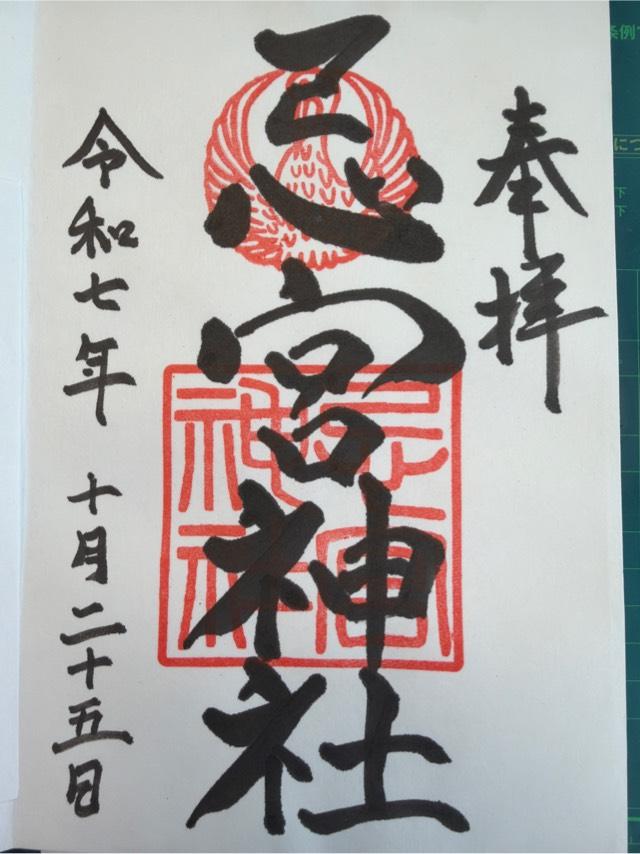 奉拝
忌宮神社
忌宮神社
令和七年 十月二十五日
条例
につ
下
下